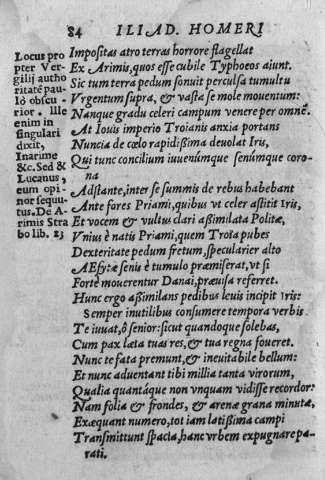 84 ILIAD. HOMERI
Locus pro
pter Ver-
gilij autho
ritatẽ pau-
lò obscu-
rior. Ille
enim in
singulari
dixit,
Inarime
&c. Sed &
Lucanus,
eum opi-
nor sequu-
tus. De A-
rimis Stra
bo lib. 13
Impositas atro terras horrore flagellat
Ex Arimis, quos esse cubile Typhoeos aiunt.
Sic tum terra pedum sonuit perculsa tumultu
Vrgentum supra, & vasta se mole mouentum:
Nanque gradu celeri campum venere per omnẽ.
At Iouis imperio Troianis anxia portans
Nuncia de cœlo rapidissima deuolat Iris,
Qui tunc concilium iuuenúmque senúmque coro-
na
Adstante, inter se summis de rebus habebant
Ante fores Priami, quibus vt celer astitit Iris,
Et vocem & vultus clari assimilata Politæ,
Vnius è natis Priami, quem Troïa pubes
Dexteritate pedum fretum, specularier alto
AEsytæ senis è tumulo præmiserat, vt si
Fortè mouerentur Danai, præuisa referret.
Hunc ergo assimilans pedibus leuis incipit Iris:
Semper inutilibus consumere tempora verbis
Te iuuat, ô senior: sicut quandoque solebas,
Cum pax læta tuas res, & tua regna foueret.
Nunc te fata premunt, & ineuitabile bellum:
Et nunc aduentant tibi millia tanta virorum,
Qualia quantáque non vnquam vidisse recordor:
Nam folia & frondes, & arenæ grana minutæ,
Exæquant numero, tot iam latissima campi
Transmittunt spacia, hanc vrbem expugnare pa-
rati.